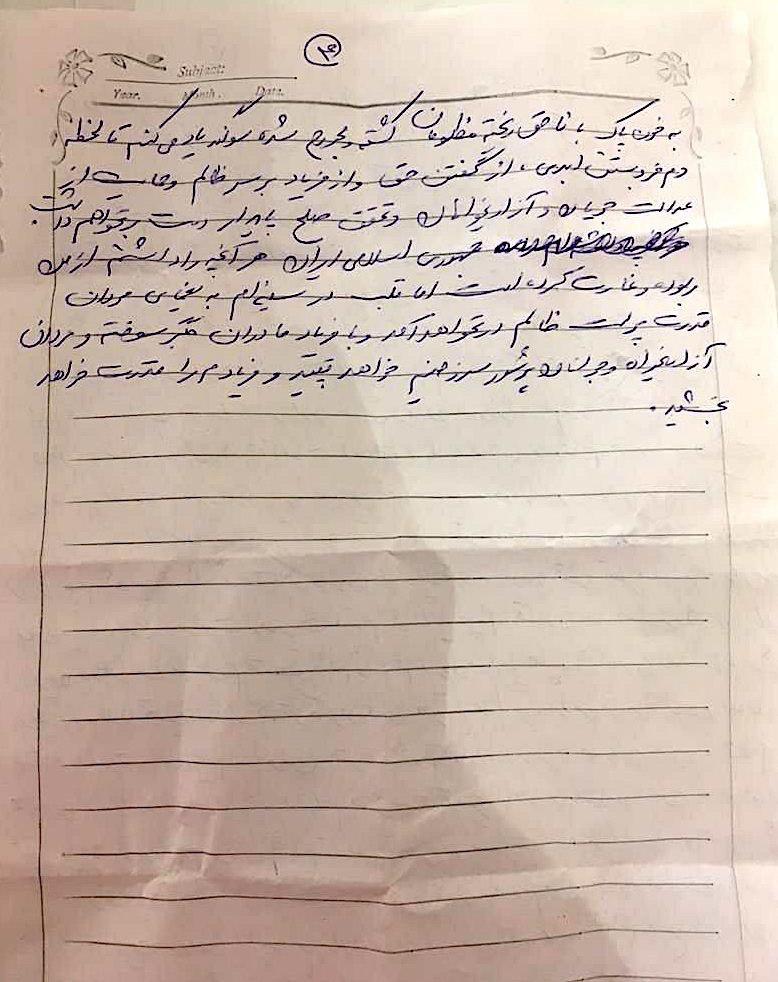 ۴
Subject:
Year. Month. Date.
به خون پاک و به ناحق ریخته مظلومان کشته و مجروح شده سوگند یاد می کنم تا لحظه
دم فرو بستن ابدی، از گفتن حق و از فریاد بر سر ظالم و حمایت از
عدالت جویان و آزادیخواهان و تحقق صلح پایدار دست برنخواهم داشت.
جمهوری اسلامی ایران هر آنچه را داشتم از من
ربوده و غارت کرده است اما قلب در سینه ام به یغمای مردان
قدرت پرست ظالم در نخواهد آمد و با فریاد مادران جگر سوخته و مردان
آزادیخواه و جوانان پرشور سرزمینم خواهد تپید و فریادم را قدرت خواهد
بخشید.